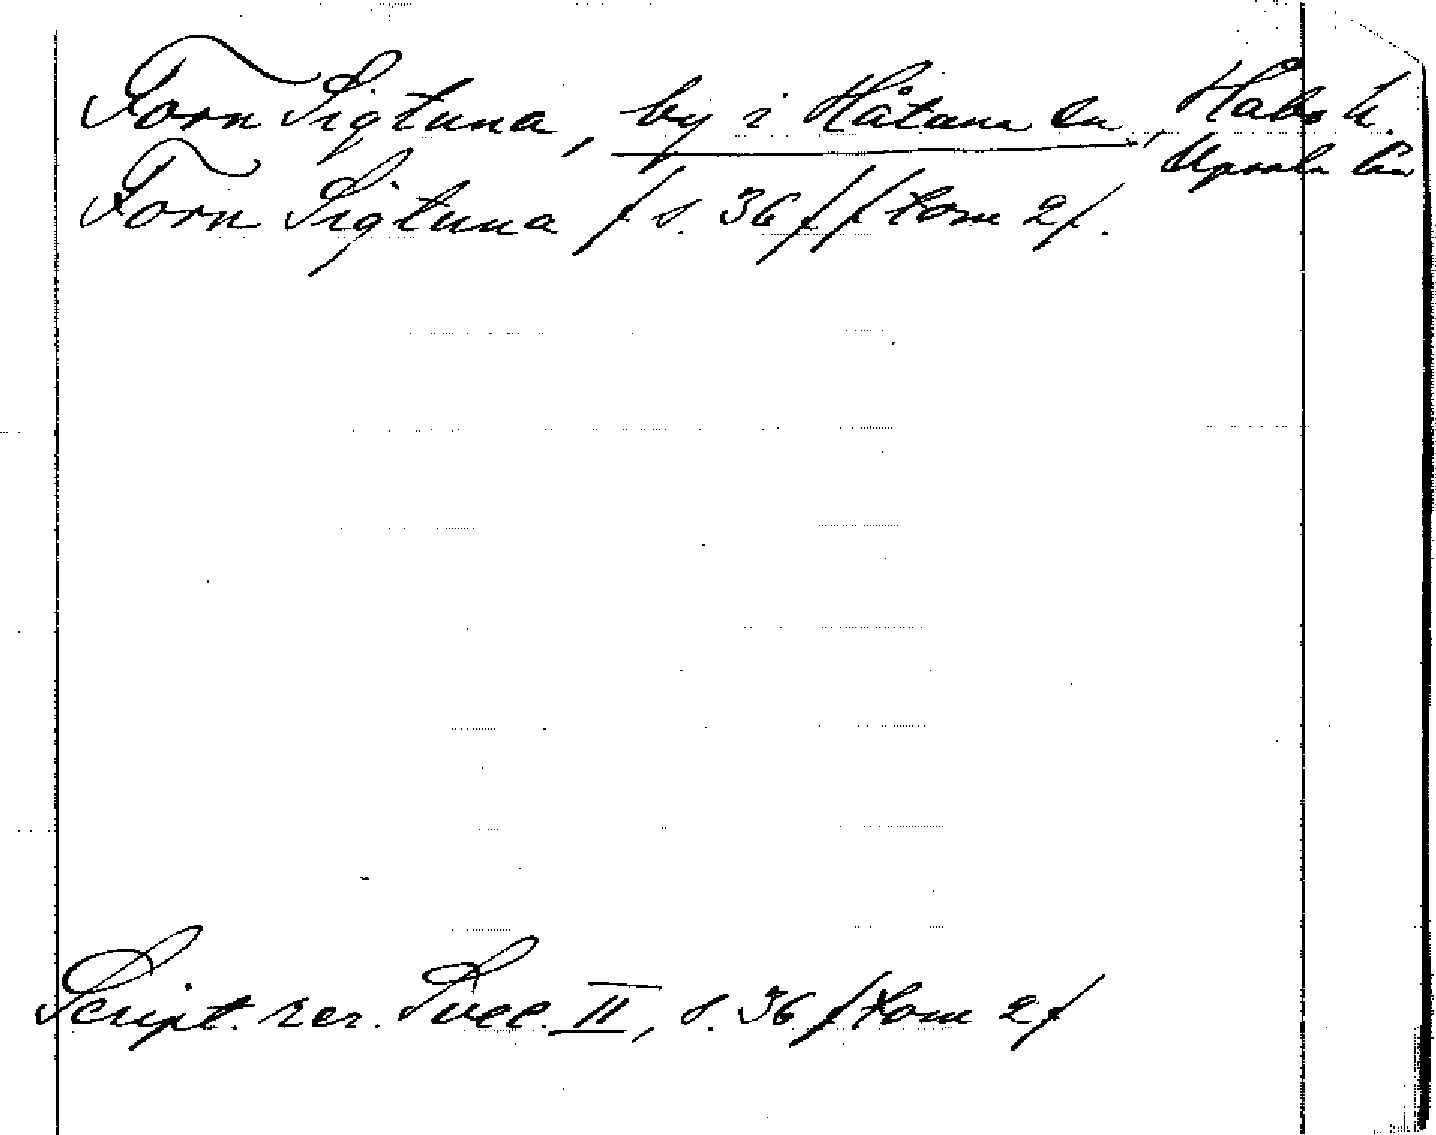 Forn Sigtuna, by i Håtuna sn, Håbo h.
Upsala län
Forn Sigtuna / s. 36 / / tom 2 /.
Script. rer. Svec. II, s. 36 / tom 2 /